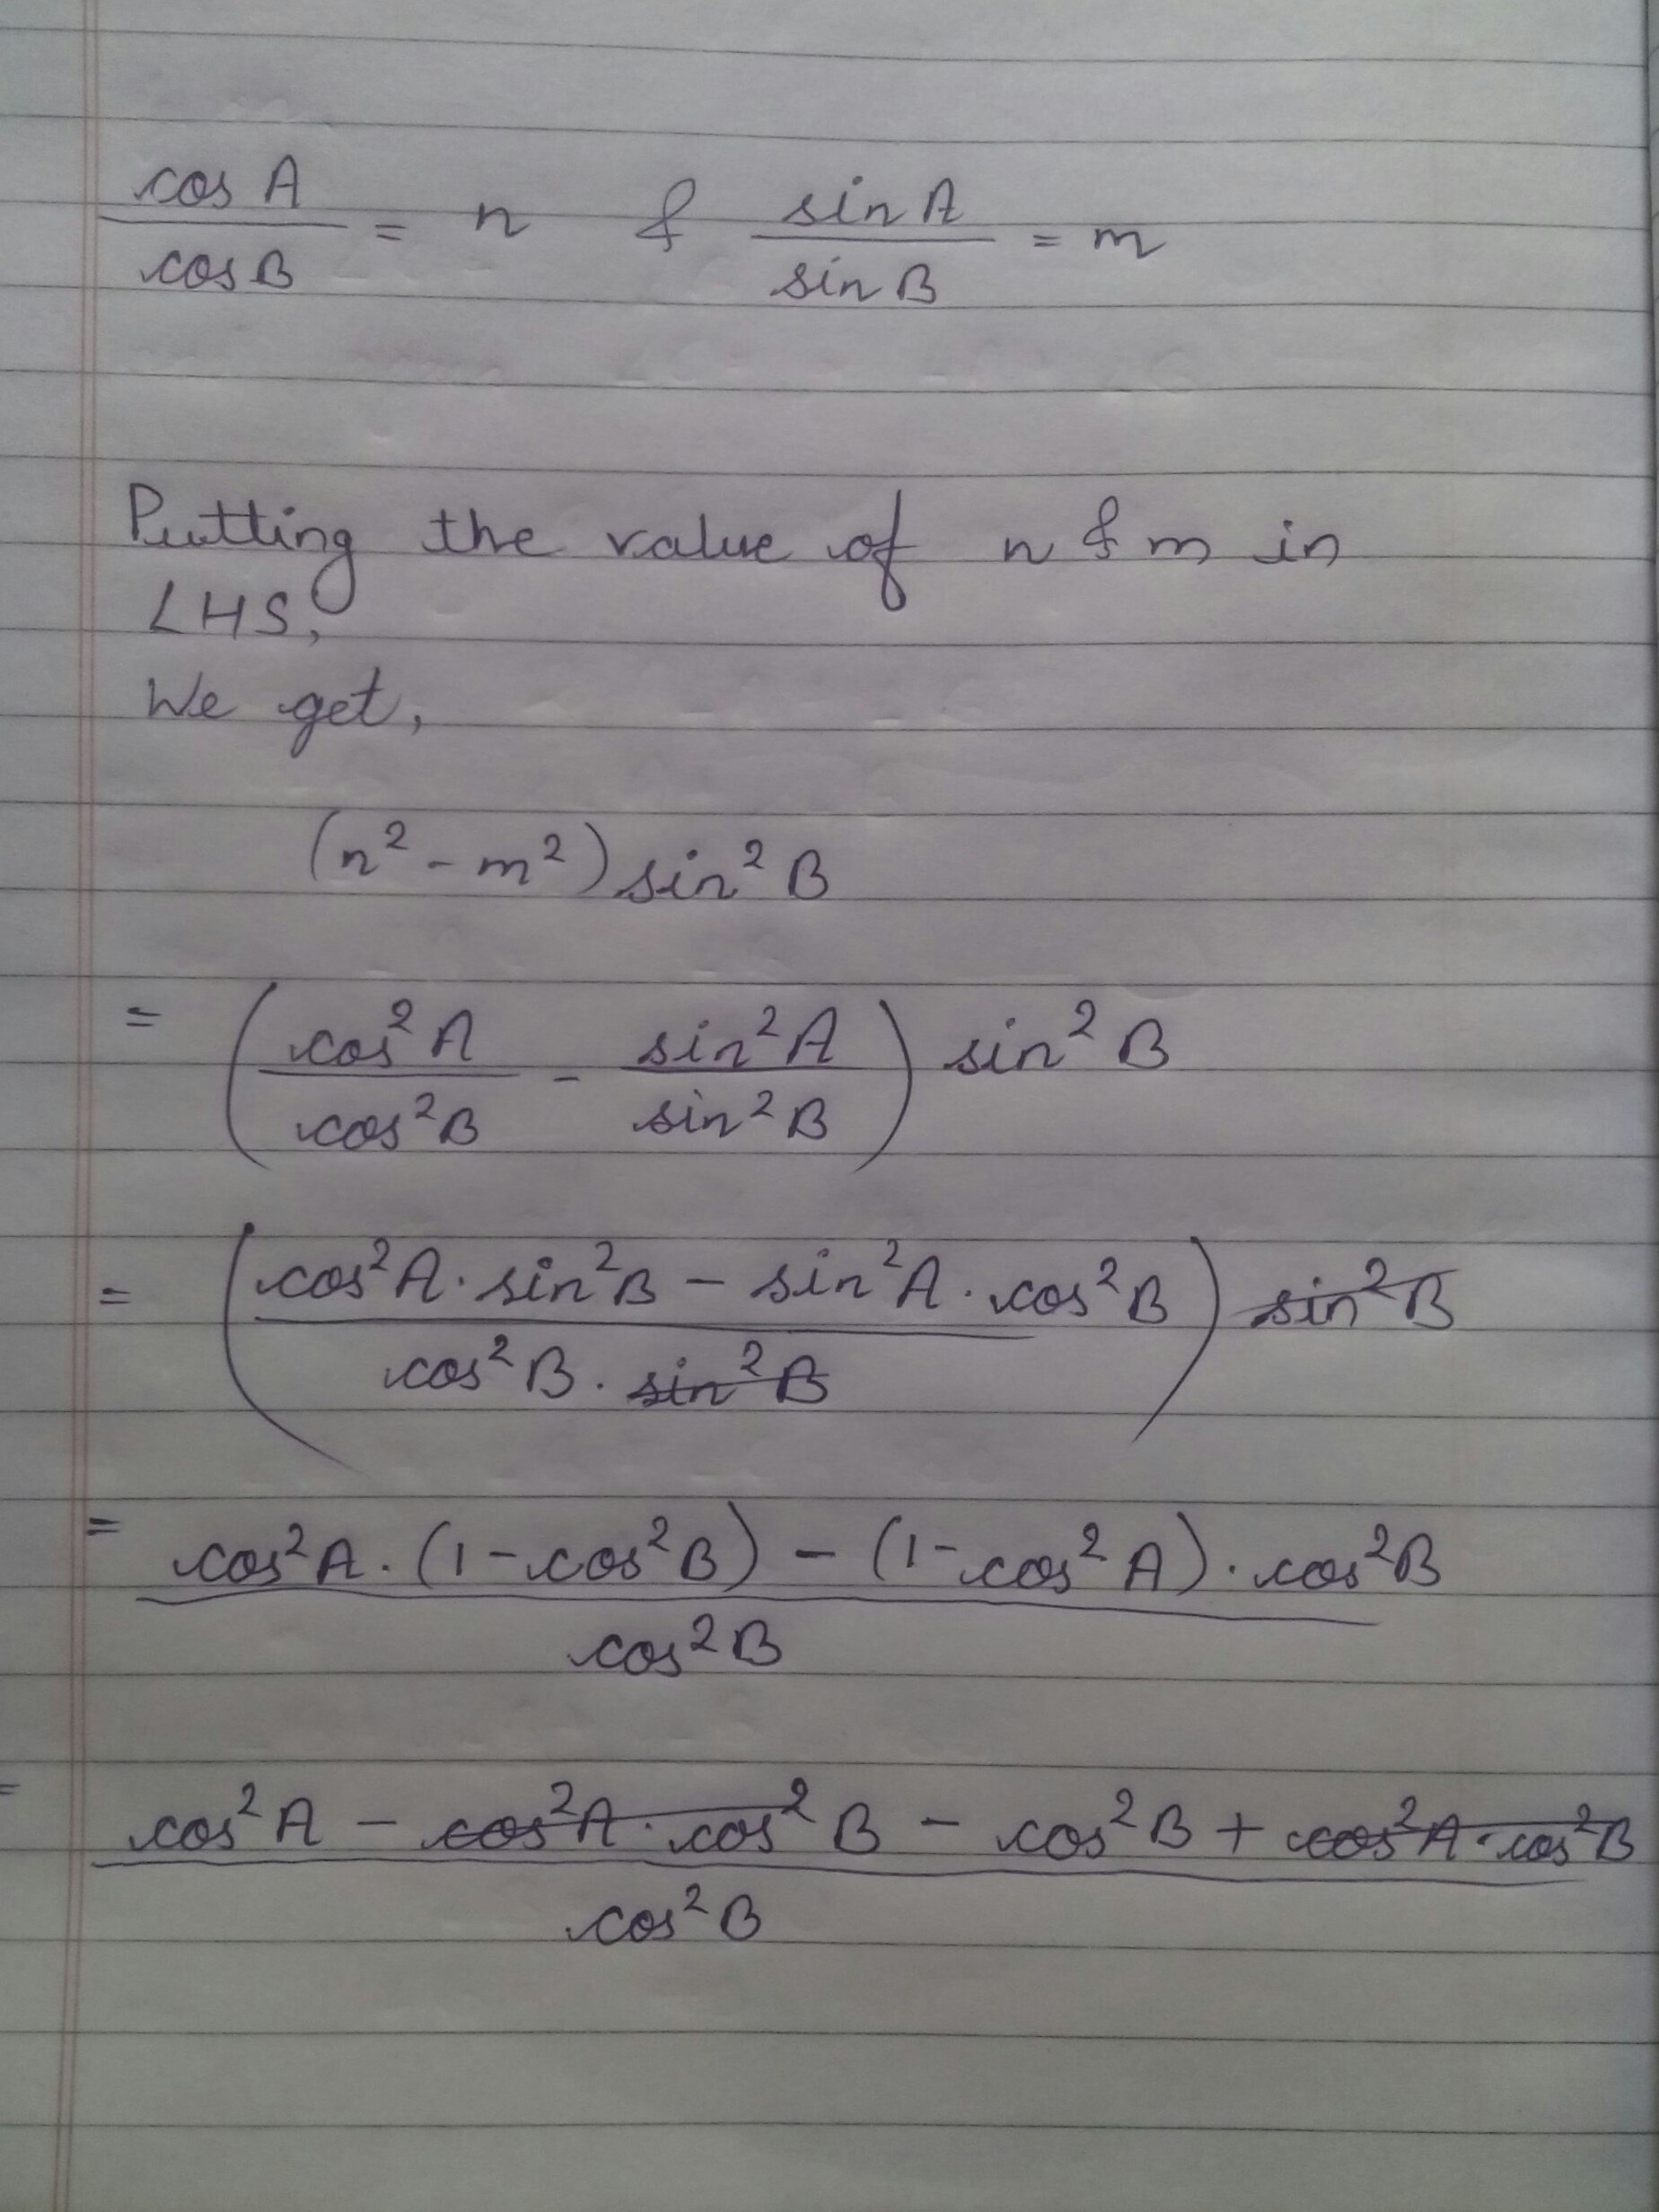 cos A / cos B = n & sin A / sin B = m
Putting the value of n & m in
LHS,
We get,
(n² - m²) sin² B
= (cos² A / cos² B - sin² A / sin² B) sin² B
= (cos² A · sin² B - sin² A · cos² B / cos² B · sin² B) sin² B
= cos² A · (1 - cos² B) - (1 - cos² A) · cos² B / cos² B
= cos² A - cos² A · cos² B - cos² B + cos² A · cos² B / cos² B